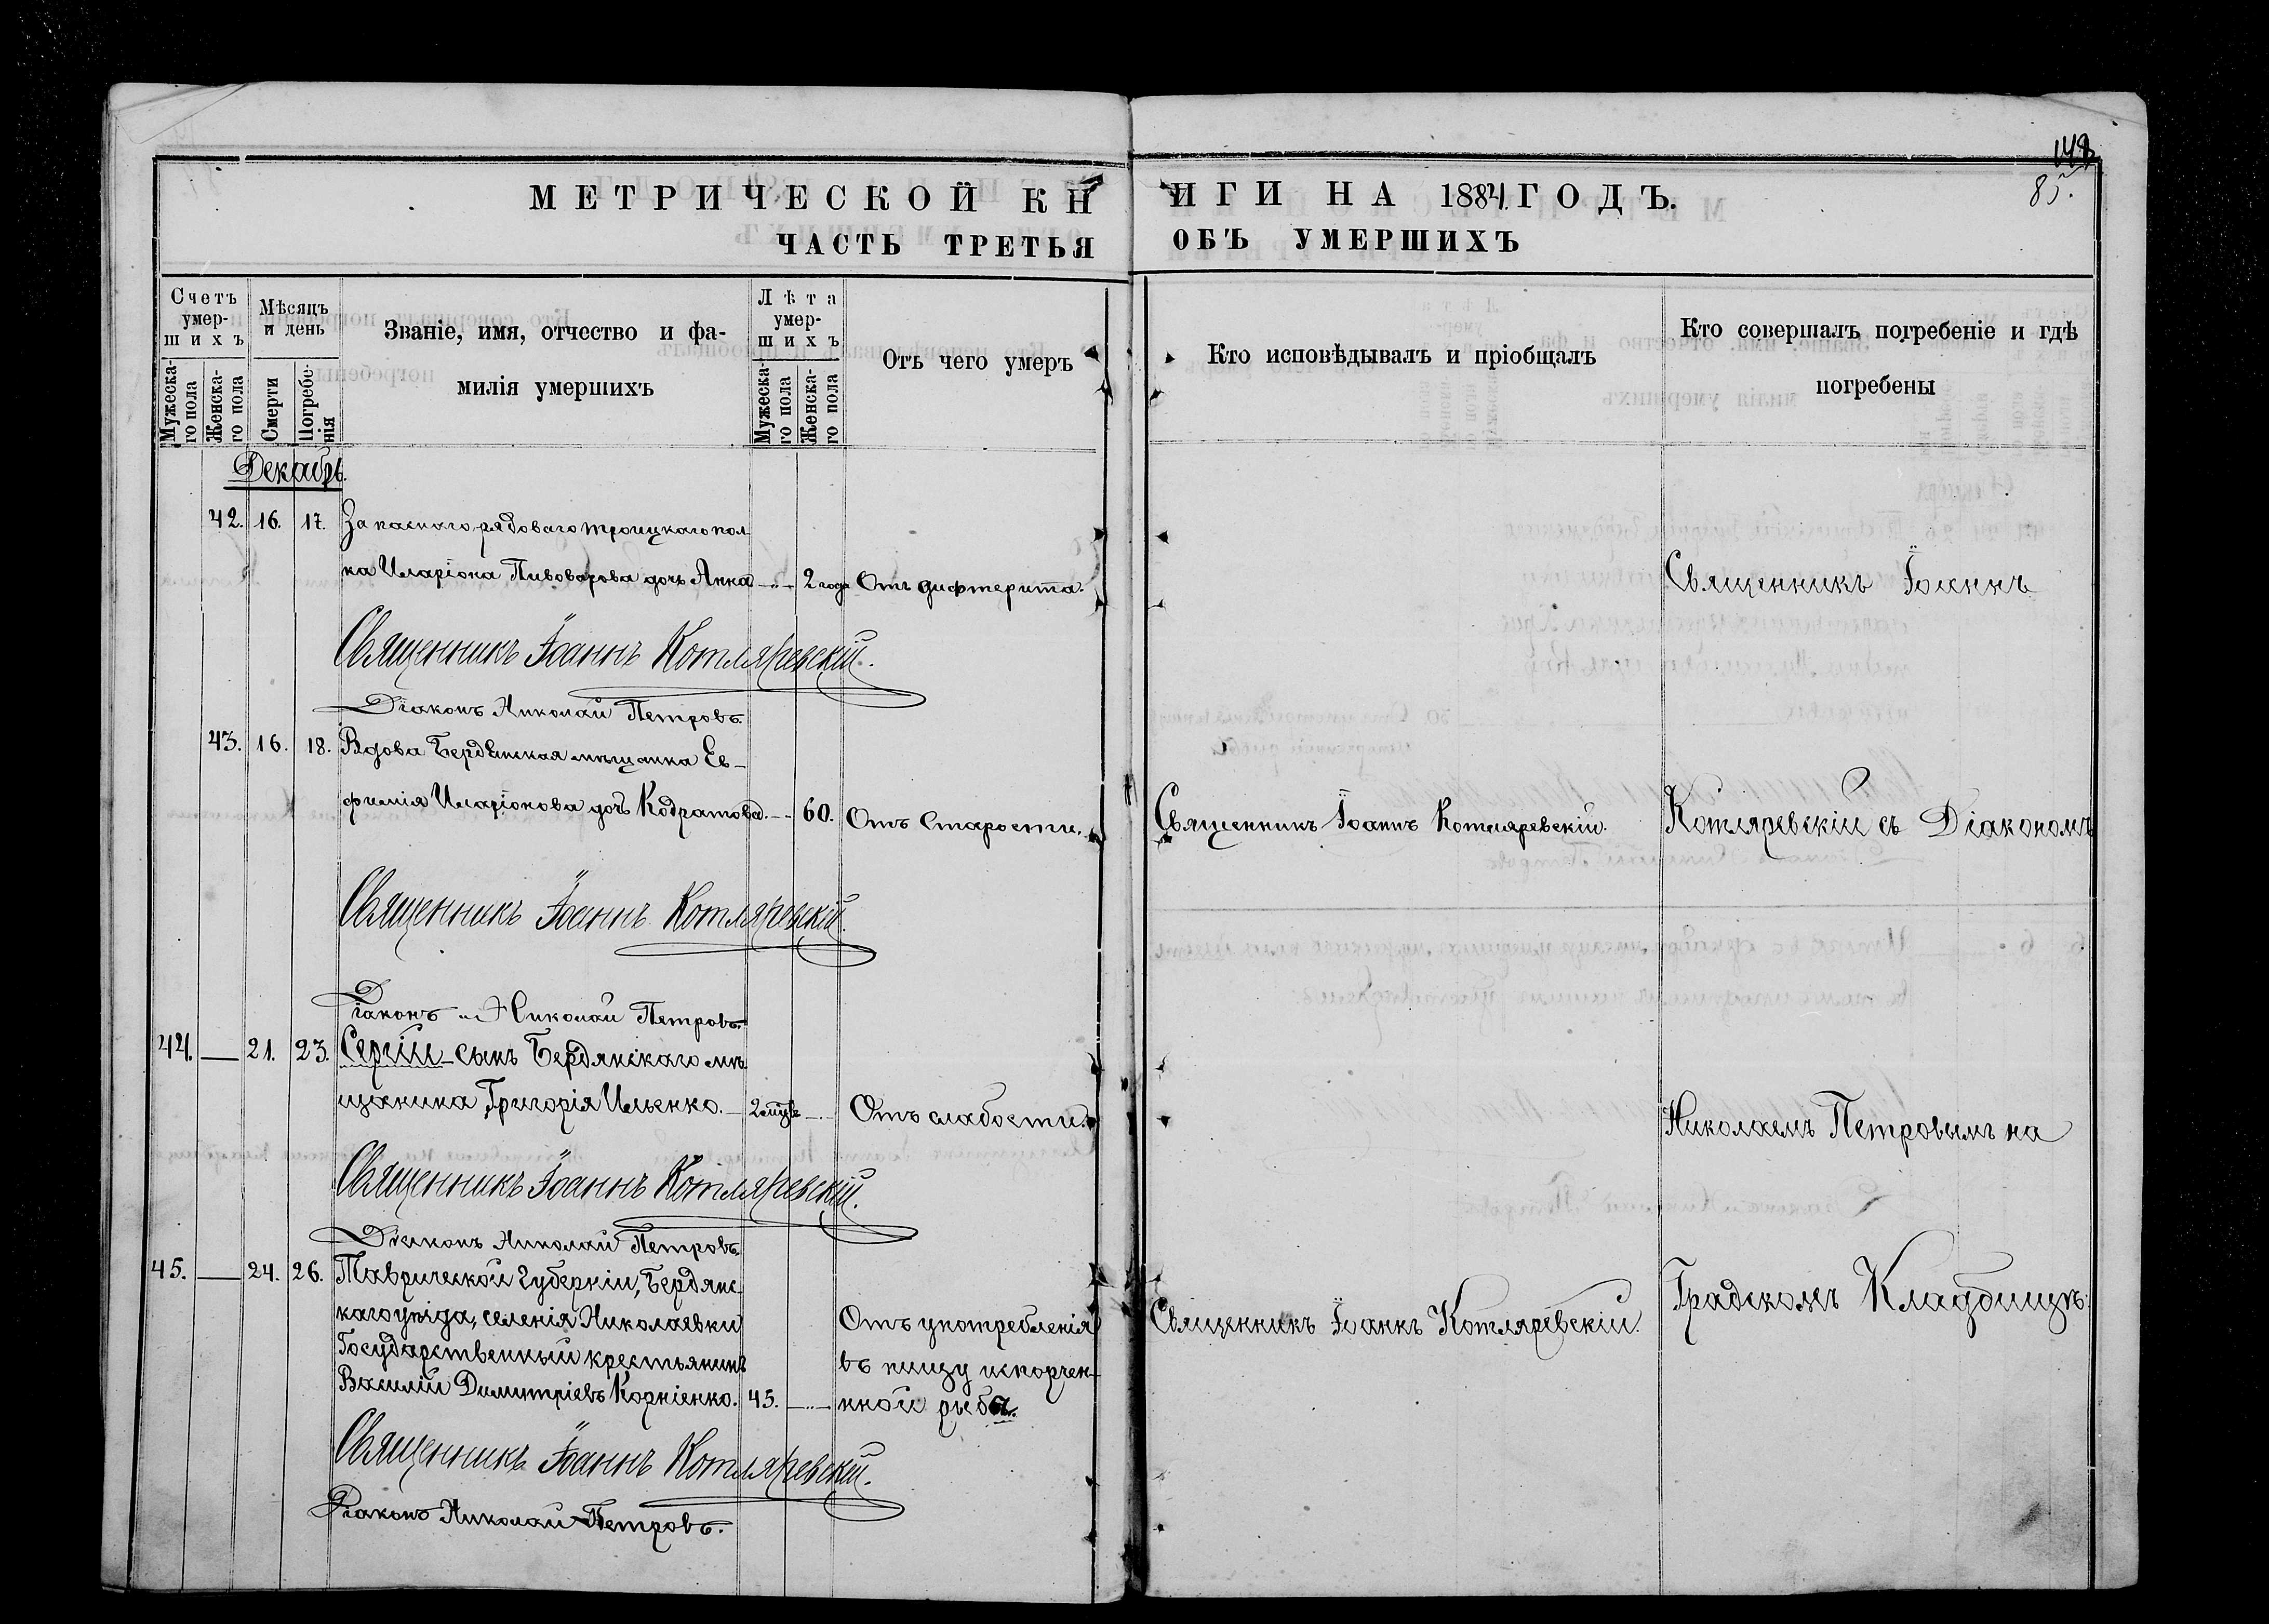 148
85.
МЕТРИЧЕСКОЙ КНИГИ НА 1884 ГОДЪ.
ЧАСТЬ ТРЕТЬЯ ОБЪ УМЕРШИХЪ
Счетъ умер-
шихъ
Мужеска-
го пола
Женска-
го пола
Мѣсяцъ
и день
Смерти
Погребе-
нія
Званіе, имя, отчество и фа-
милія умершихъ
Лѣта
умер-
шихъ
Мужеска-
го пола
Женска-
го пола
Отъ чего умеръ
Кто исповѣдывалъ и пріобщалъ
Кто совершалъ погребеніе и гдѣ
погребены
Декабрь.
42. 16. 17. Запаснаго рядоваго Троицкаго пол-
ка Иларіона Пивоварова дочь Анна 2 года Отъ дифтерита.
Священникъ Іоаннъ
Священникъ Іоаннъ Котляревскій.
Діаконъ Николай Петровъ.
43. 16. 18. Вдова Бердянская мѣщанка Ев-
фимія Иларіонова дочь Кодратова. 60. Отъ старости.
Священникъ Іоаннъ Котляревскій.
Котляревскій съ Діакономъ
Священникъ Іоаннъ Котляревскій.
Діаконъ Николай Петровъ.
44. — 21. 23. Сергій – сынъ Бердянскаго мѣ-
щанина Григорія Ильенко. 2 мѣц. Отъ слабости.
Николаемъ Петровымъ на
Священникъ Іоаннъ Котляревскій.
Діаконъ Николай Петровъ.
45. — 24. 26. Таврической Губерніи, Бердянс-
каго уѣзда, селенія Николаевки
Государственный крестьянинъ
Василій Димитріевъ Корніенко. 45.
Отъ употребленія
въ пищу испорчен-
нной рыбы.
Священникъ Іоаннъ Котляревскій.
Градскомъ Кладбищѣ.
Священникъ Іоаннъ Котляревскій.
Діаконъ Николай Петровъ.